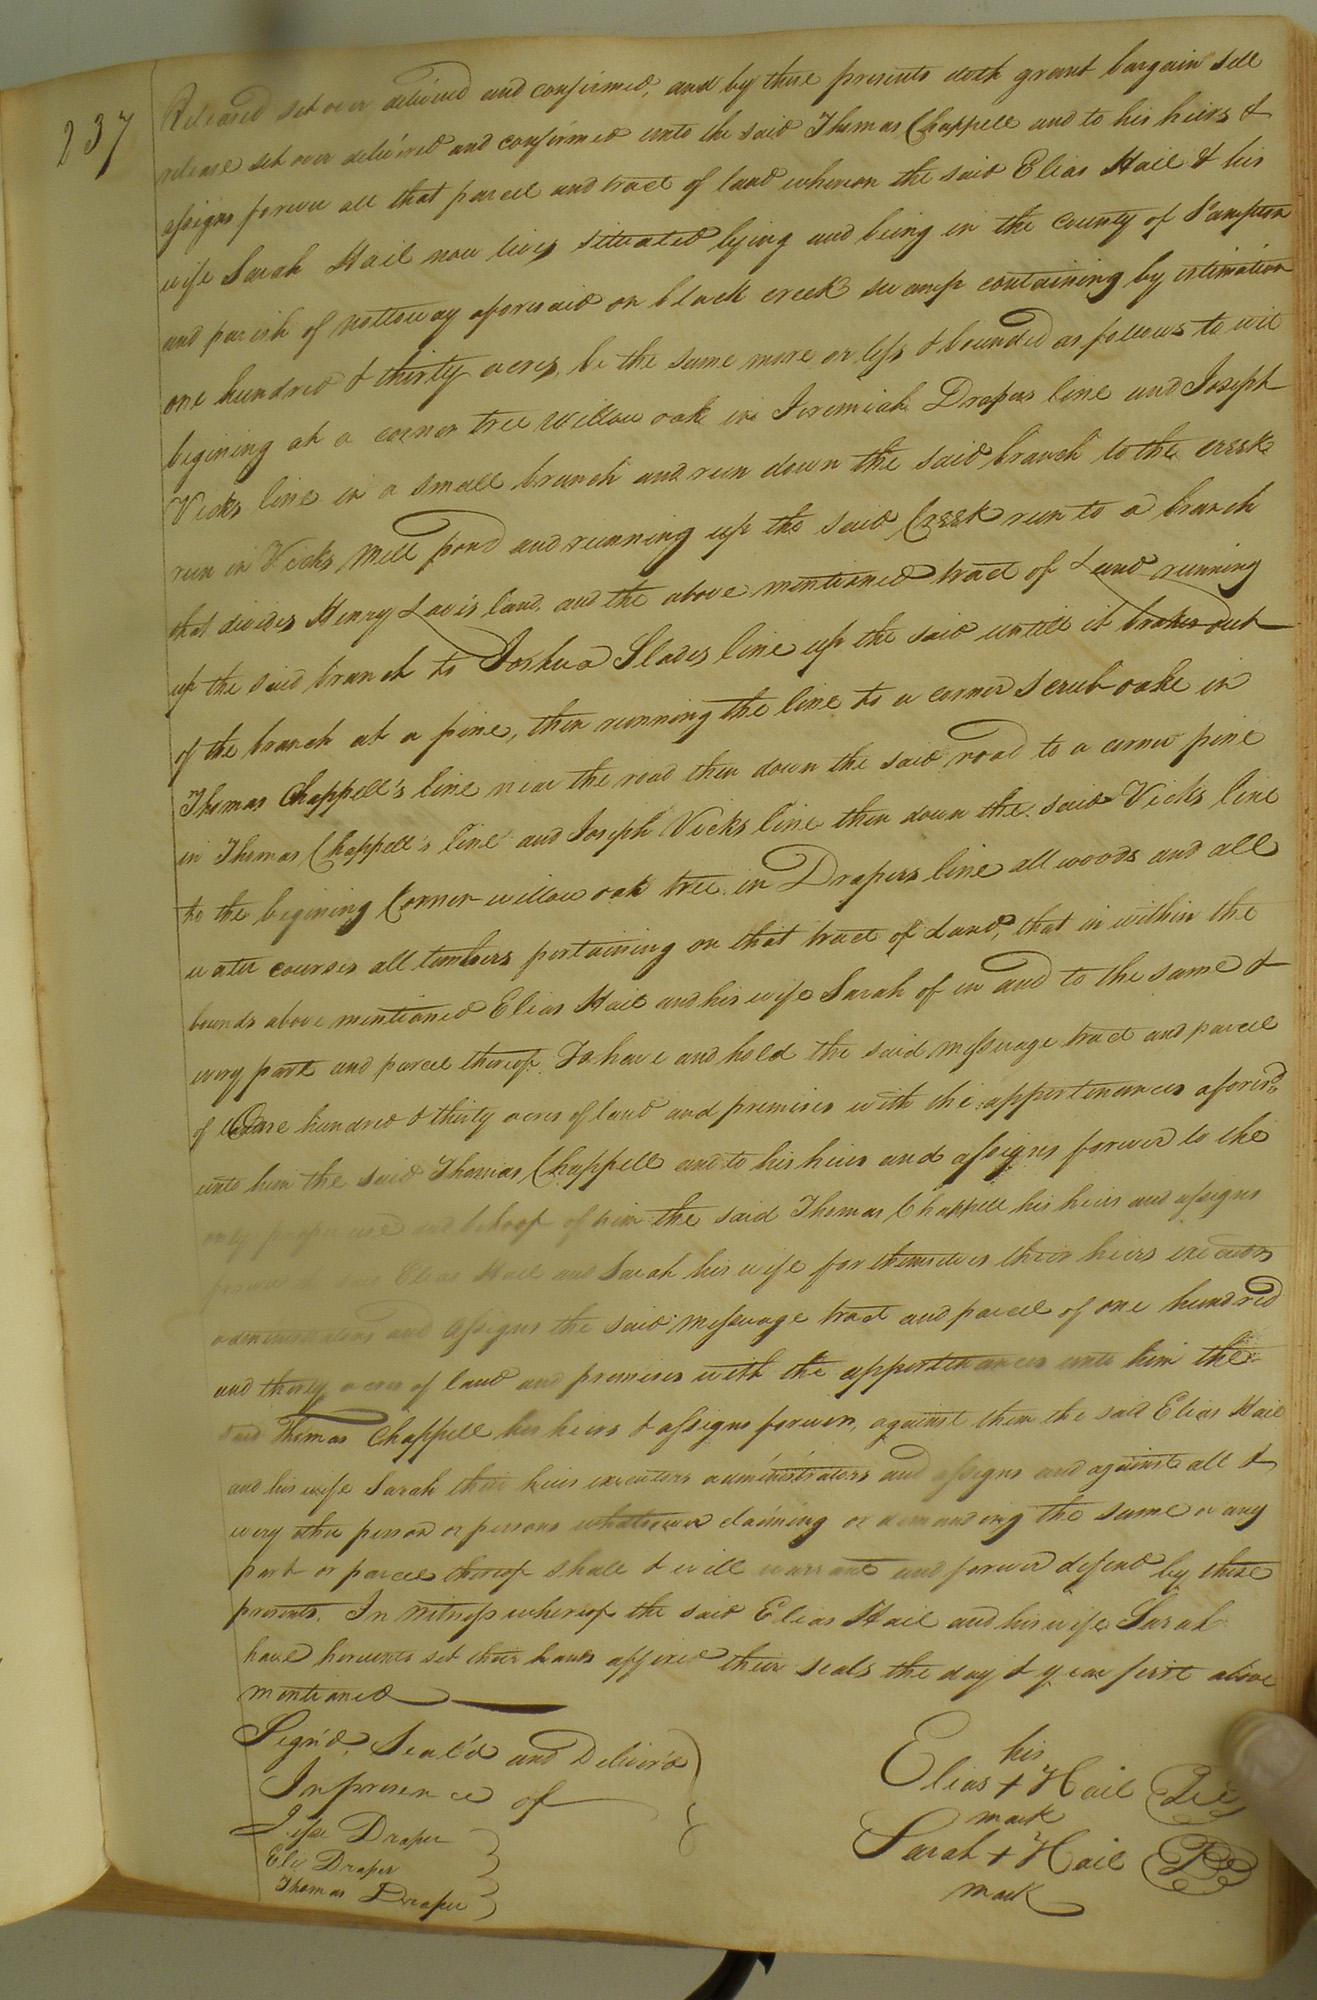 237
Released set over delivered and confirmed, and by these presents doth grant bargain sell
release set over delivered and confirmed unto the said Thomas Chappell and to his heirs &
assigns forever all that parcel and tract of land whereon the said Elias Hail & his
wife Sarah Hail now lives situated lying and being in the county of Sampton
and parish of Nottoway aforesaid on black creek swamp containing by estimation
one hundred & thirty acres, be the same more or less & bounded as follows to wit
begining at a corner tree Willow oak in Jeremiah Drapers line and Joseph
Vicks line in a small branch and run down the said branch to the creek
run in Vicks Mill pond and running up the said Creek run to a branch
that divides Henry Lavis land, and the above mentioned tract of Land running
up the said branch to Joshua Slades line up the said untill it brakes out
of the branch at a pine, then running the line to a corner scrub oake in
Thomas Chappell's line near the road then down the said road to a corner pine
in Thomas Chappell's line and Joseph Vicks line then down the said Vicks line
to the begining Corner willow oak tree in Drapers line all woods and all
water courses all timbers pertaining on that tract of Land, that in within the
bounds above mentioned Elias Hail and his wife Sarah of in and to the same &
every part and parcel thereof To have and hold the said messuage tract and parcel
of One hundred & thirty acres of land and premises with the appertinances aforesd
unto him the said Thomas Chappell and to his heirs and assigns forever to the
only proper use and behoof of him the said Thomas Chappell his heirs and assigns
forever the said Elias Hail and Sarah his wife for themselves their heirs executors
administrators and assigns the said messuage tract and parcel of one hundred
and thirty acres of land and premises with the appertinances unto him the
said Thomas Chappell his heirs & assigns forever, against them the said Elias Hail
and his wife Sarah their heirs executors administrators and assigns and against all &
every other person or persons whatsoever claiming or demanding the same or any
part or parcel thereof shall & will warrant and forever defend by these
presents. In Witness whereof the said Elias Hail and his wife Sarah
have hereunto set their hands affixed their seals the day & year first above
mentioned
Sign'd, Seal'd and Deliver'd
In presence of
Jesse Draper
Eli Draper
Thomas Draper
his
Elias + Hail
mark
Sarah + Hail
mark